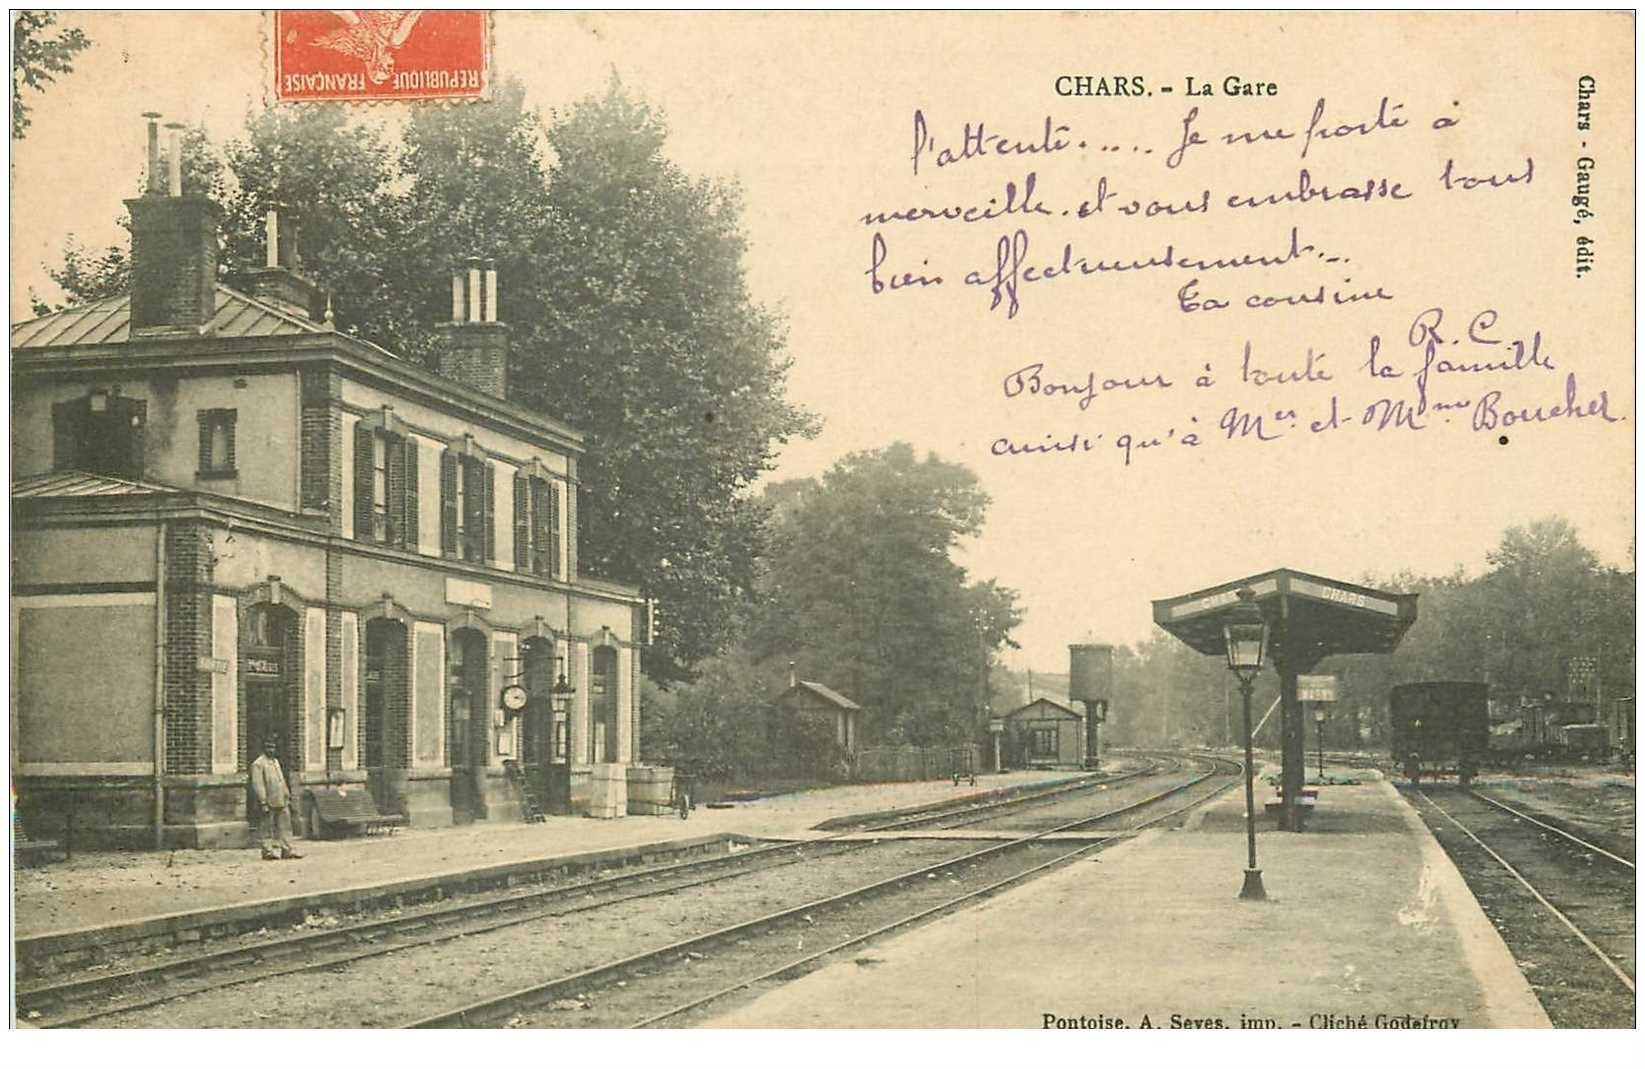 REPUBLIQUE FRANÇAISE
CHARS. - La Gare
l'attente..... Je me porte à
merveille. et vous embrasse tous
bien affectueusement...
Ta cousine
R. C
Bonjour à toute la famille
ainsi qu'à Mer et Mme Boucher.
Chars - Gaugé, édit.
SORTIE
CHARS
Pontoise. A. Seyes, imp. - Cliché Godefroy